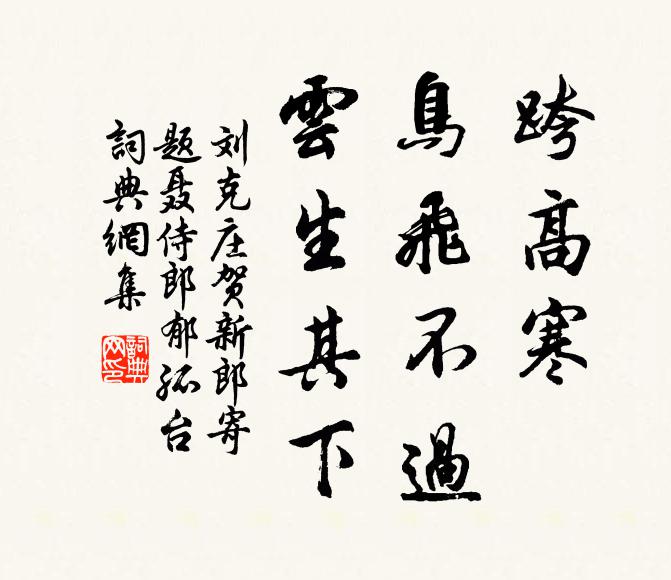 跨高寒
鳥飛不過
雲生其下
刘克庄贺新郎寄
题聂侍郎郁孤台
詞典網集
詞典
网印